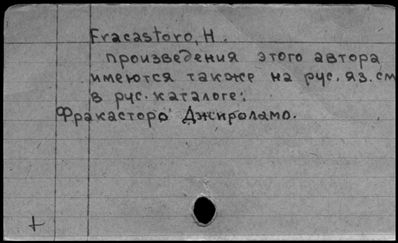 Fracastoro, H.
произведения этого автора
имеются также на рус. яз. см
в рус. каталоге:
Фракасторо Джироламо.